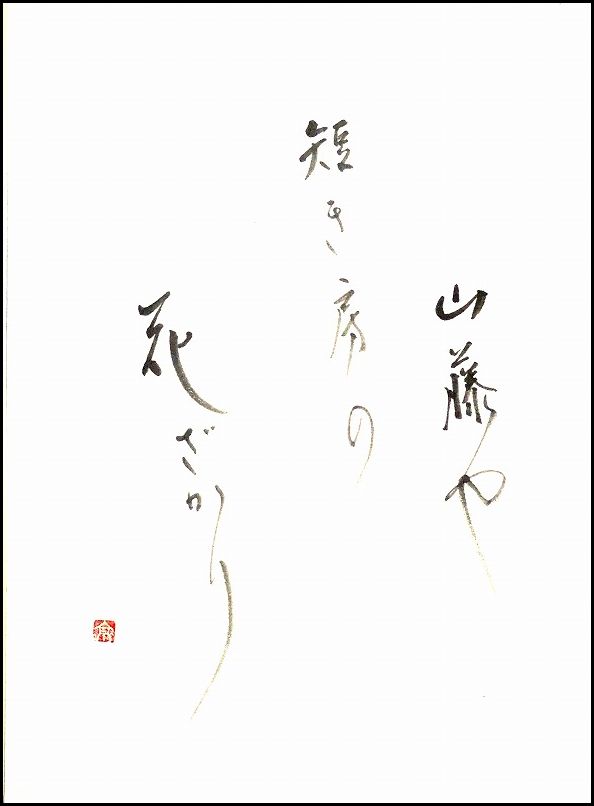 山藤や
短き房の
花ざかり